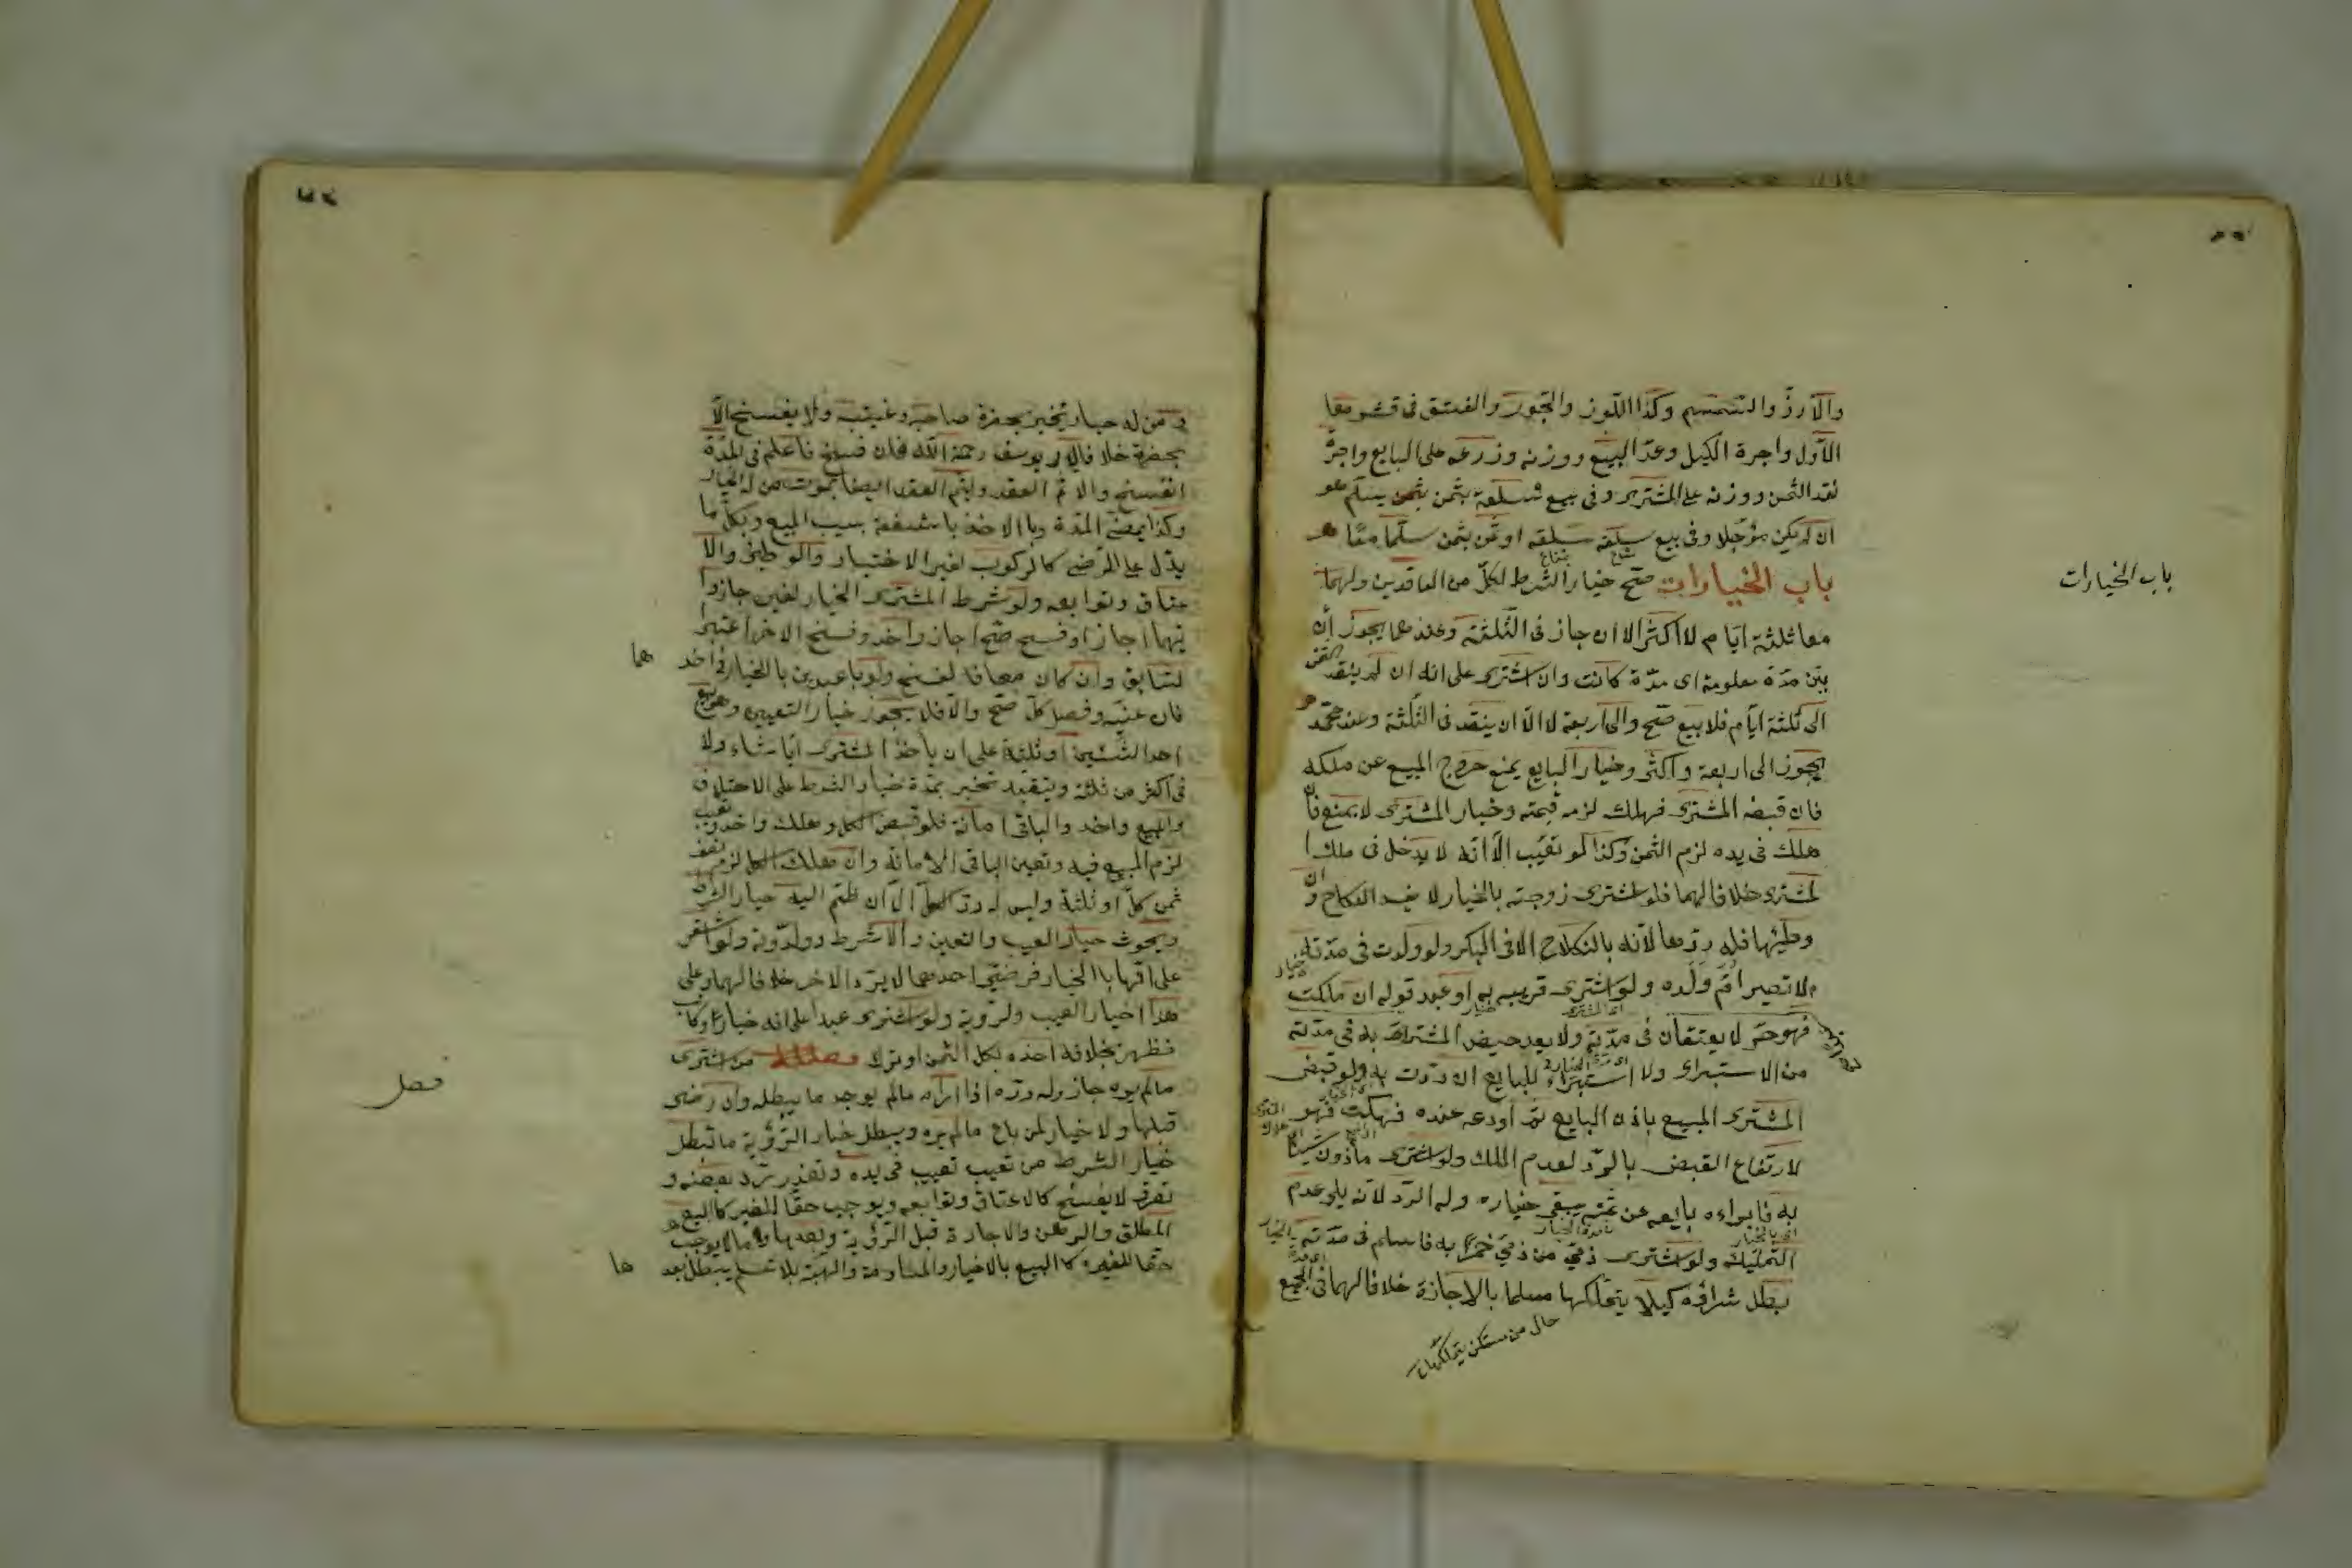 والأرز والسمسم وكذا اللوز والجوز والفستق في قشرها
الأول واجرة الكيل وعد البيع ووزنه وذرعه على البايع واجرة
نقد الثمن ووزنه على المشتري وفي بيع سلعة بثمن بثمن يسلم هو
ان لم يكن مؤجلا وفي بيع سلعة سلعة او ثمن بثمن سلما معا
باب الخيارات صح خيار الشرط لكل من العاقدين ولهما
باب الخيارات
معا ثلثة ايام لا اكثر الا ان جاز في الثلثة وعندهما يجوز ان
بين مدة معلومة اى مدة كانت وان اشترى على انه ان لم ينقد الثمن
الى ثلثة ايام فلا بيع صح والى اربعة لا الا ان ينقد في الثلثة وعند محمد
يجوز الى اربعة واكثر وخيار البايع يمنع خروج المبيع عن ملكه
فان قبضه المشترى فهلك لزمه قيمته وخيار المشترى لا يمنع فان
هلك في يده لزم الثمن وكذا لو تعيب الا انه لا يدخل في ملك ا
لمشترى خلافا لهما فلو اشترى زوجته بالخيار لا يفسد النكاح وان
وطئها فله ردها لانه بالنكاح الا في البكر ولو ولدت في مدته
لا تصير ام ولده ولو اشترى قريبه به او عبد قوله ان ملكت
فهو حر لا يعتقان في مدته ولا يعد حيض المشتراة به في مدته
من الاستبراء ولا استبراء للبايع ان ردت به ولو قبض
المشترى المبيع باذن البايع ثم اودعه عنده فهلكت فهو
لارتفاع القبض بالرد لعدم الملك ولو اشترى مأذون شيئا
به فابراءه بايعه عن ثمنه يبقى خياره وله الرد لانه يلى عدم
التمليك ولو اشترى ذمي من ذمي خمرا به فاسلم في مدته
بطل شراؤه كيلا يتملكها مسلما بالاجازة خلافا لهما في الجميع
ومن له خيار يخير بحضرة صاحبه وغيبته ولا يفسخ الا
بحضرته خلافا لابي يوسف رحمة الله فان فسخ فاعلم في المدة
انفسخ والا تم العقد ويتم العقد ايضا بموت من له الخيار
وكذا بمضي المدة وبا الاخذ باشفعة بسبب المبيع وبكل ما
يدل على الرضى كالركوب لغير الاختبار والوطئ والا
عتاق وتوابعه ولو شرط المشترى الخيار لغيره جاز وا
يهما اجاز او فسخ صح اجاز واحد وفسخ الاخر اعتبر
لسابق وان كان معا فا لفسخ ولو باع عبدين بالخيار في احد
هما
فان عينه وفصل كل صح والا فلا يجوز خيار التعيين وهو بيع
احد الشيئين او ثلثة على ان يأخذ المشترى ايا شاء ولا
في اكثر من ثلثة ويتقيد تخير بمدة خيار الشرط على الاختلاف
والمبيع واحد والباقي امانة فلو قبض الكل وهلك واحد وتعيب
لزم المبيع فيه وتعين الباقي الامانة وان هلك الكل لزم نصف
ثمن كل او ثلثة وليس له رد الكل الا ان ظتم اليه خيار الشرط
ويورث خيار العيب والتعين والا شرط وو لرؤية ولو اشترى
على انهما بالخيار فرضي احدهما لا يرد الاخر خلافا لهما وعلى
هذا اخيار العيب ولرؤية ولو اشترى عبدا على انه خباز او كاتب
فظهر بخلافه اخذه بكل الثمن او ترك فصل من اشترى
فصل
مالم يره جاز وله رده اذا راه مالم يوجد ما يبطله وان رضى
قبلها ولا خيار لمن باع مالم يره ويبطل خيار الرؤية ما تبطل
خيار الشرط من تعيب تعيب في يده وتعذر رد بعضه و
تصرف لا يفسخ كالاعتاق وتوابعه ويوجب حقا للغير كالبيع
المطلق والرهن والاجارة قبل الرؤية وبعدها وما لا يوجب
حقا للغيره كالبيع بالاخيار والمساومة والهبة بلا تسليم يبطل بعد
ها